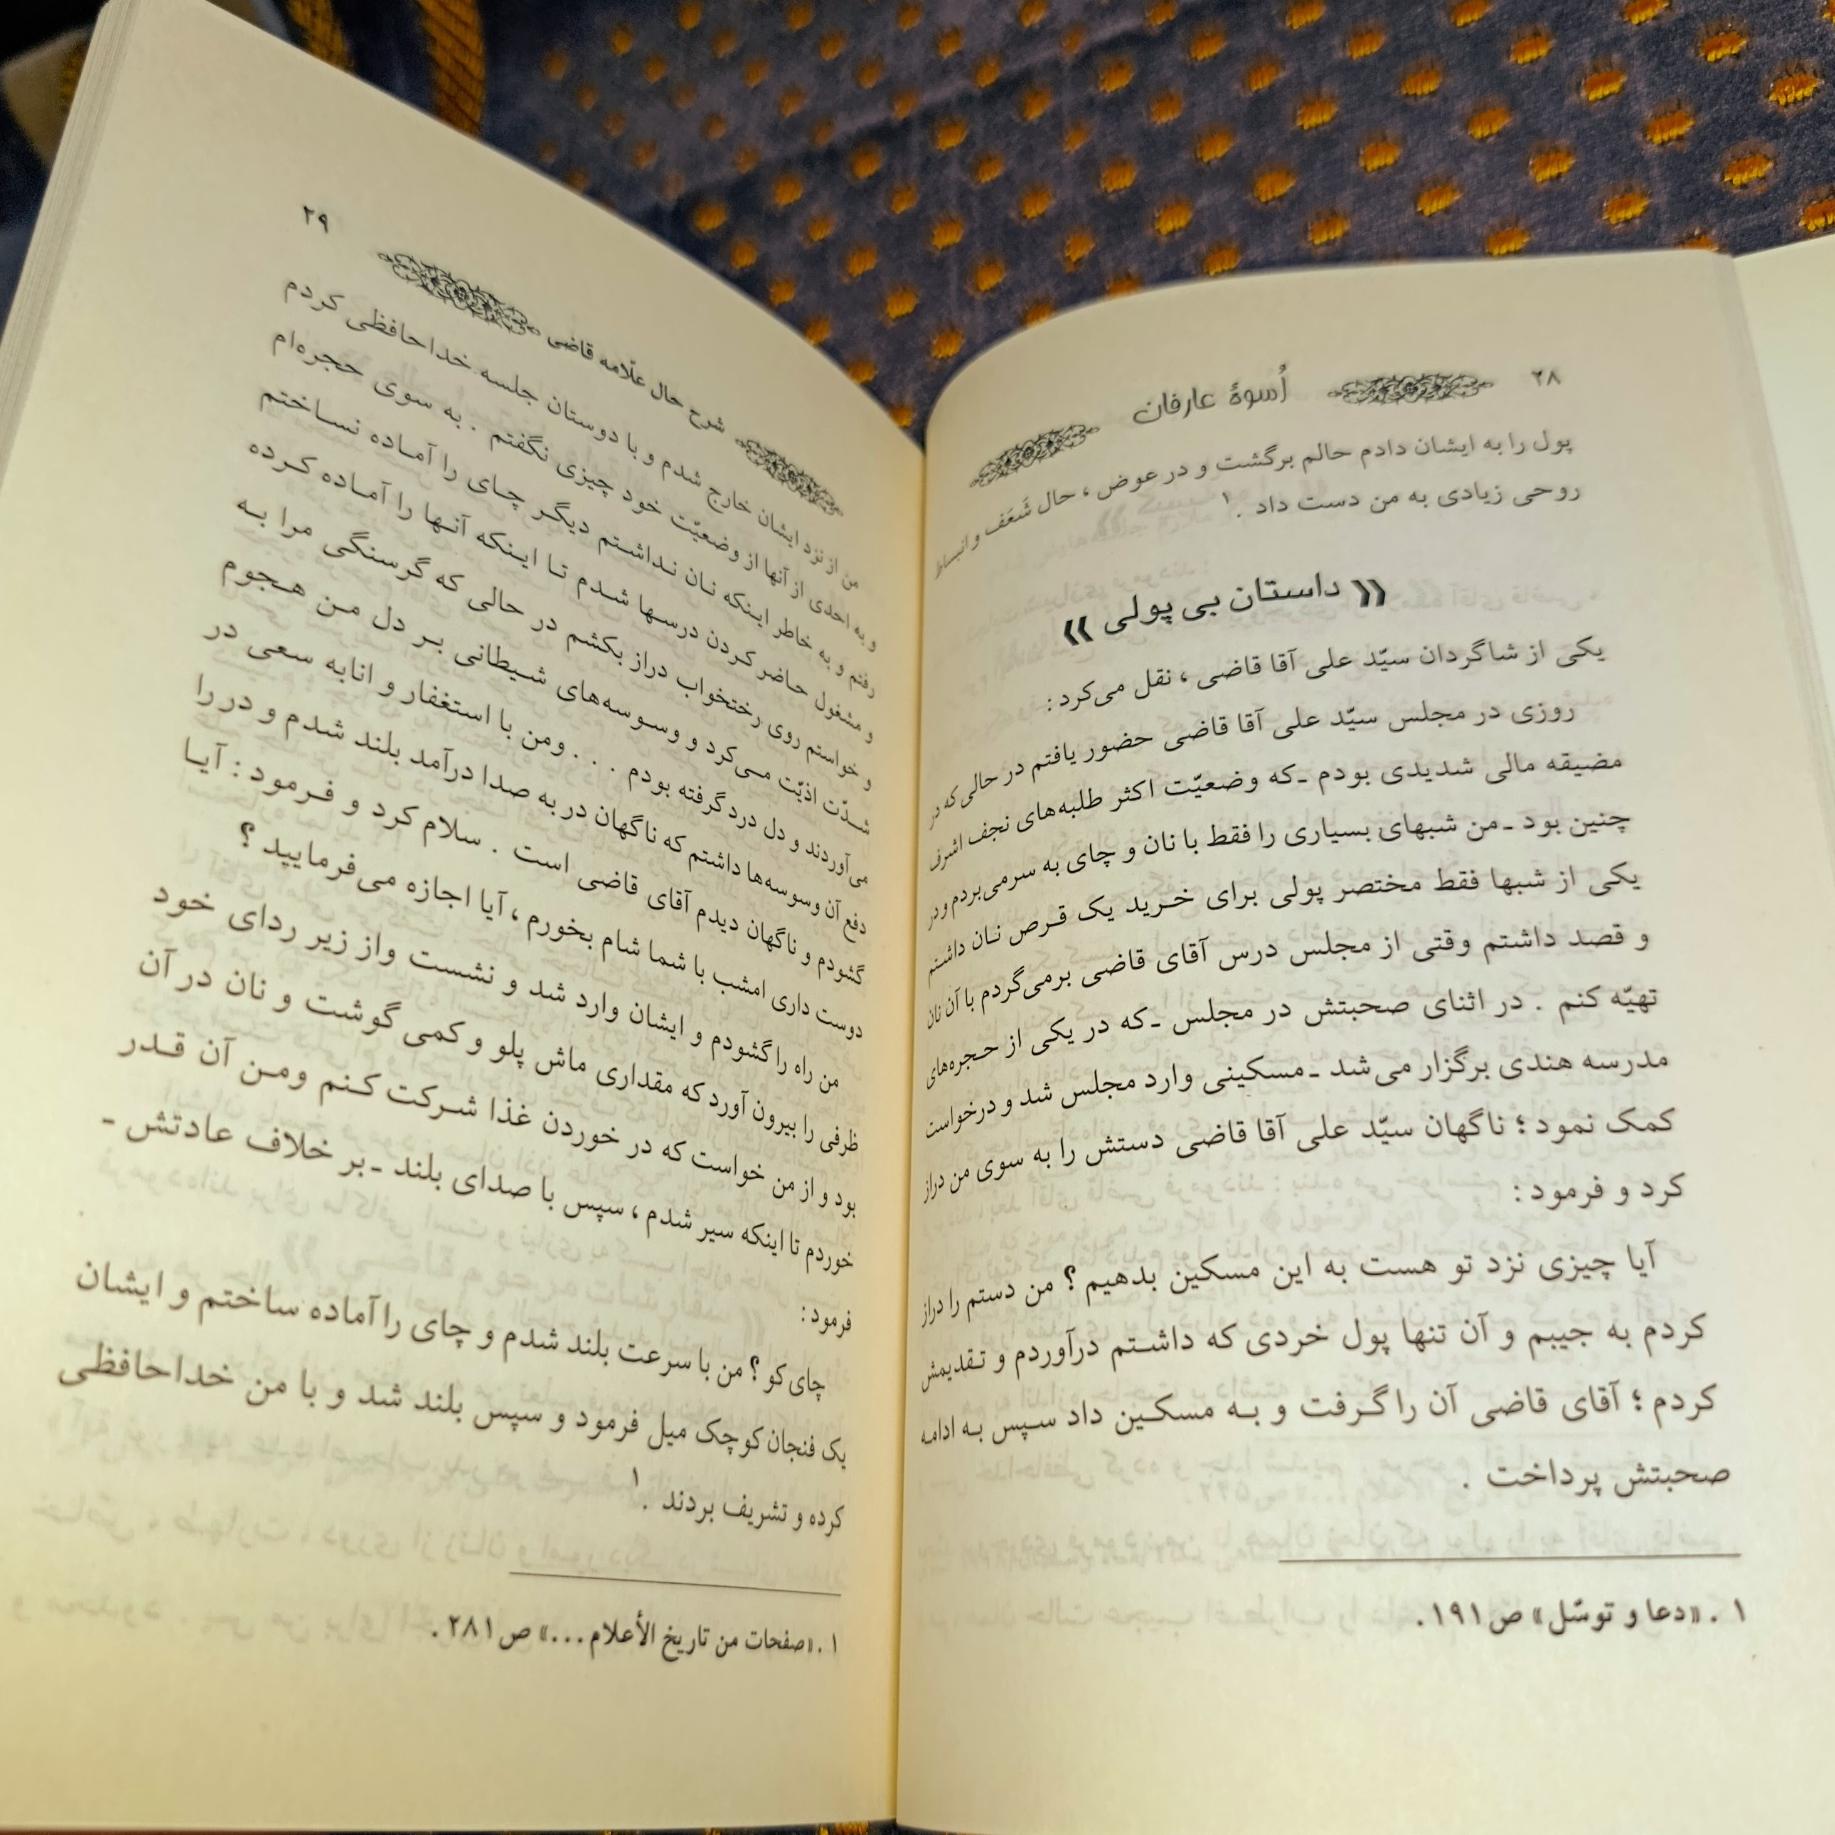 ۲۸
اُسوهٔ عارفان
پول را به ایشان دادم حالم برگشت و در عوض ، حال شَعَف و انبساط
روحی زیادی به من دست داد .۱
« داستان بی پولی »
یکی از شاگردان سیّد علی آقا قاضی ، نقل می‌کرد :
روزی در مجلس سیّد علی آقا قاضی حضور یافتم در حالی که در
مضیقه مالی شدیدی بودم ـ که وضعیّت اکثر طلبه‌های نجف اشرف
چنین بود ـ من شبهای بسیاری را فقط با نان و چای به سر می‌بردم و در
یکی از شبها فقط مختصر پولی برای خرید یک قرص نان داشتم
و قصد داشتم وقتی از مجلس درس آقای قاضی برمی‌گردم با آن نان
تهیّه کنم . در اثنای صحبتش در مجلس ـ که در یکی از حجره‌های
مدرسه هندی برگزار می‌شد ـ مسکینی وارد مجلس شد و درخواست
کمک نمود ؛ ناگهان سیّد علی آقا قاضی دستش را به سوی من دراز
کرد و فرمود :
آیا چیزی نزد تو هست به این مسکین بدهیم ؟ من دستم را دراز
کردم به جیبم و آن تنها پول خردی که داشتم درآوردم و تقدیمش
کردم ؛ آقای قاضی آن را گرفت و به مسکین داد سپس به ادامه
صحبتش پرداخت .
۱ . «دعا و توسّل» ص ۱۹۱.
شرح حال علّامه قاضی
۲۹
من از نزد ایشان خارج شدم و با دوستان جلسه خداحافظی کردم
و به احدی از آنها از وضعیّت خود چیزی نگفتم . به سوی حجره‌ام
رفتم و به خاطر اینکه نان نداشتم دیگر چای را آماده نساختم
و مشغول حاضر کردن درسها شدم تا اینکه آنها را آماده کرده
و خواستم روی رختخواب دراز بکشم در حالی که گرسنگی مرا به
شدّت اذیّت می‌کرد و وسوسه‌های شیطانی بر دل من هجوم
می‌آوردند و دل درد گرفته بودم . . . ومن با استغفار و انابه سعی در
دفع آن وسوسه‌ها داشتم که ناگهان در به صدا درآمد بلند شدم و در را
گشودم و ناگهان دیدم آقای قاضی است . سلام کرد و فرمود : آیا
دوست داری امشب با شما شام بخورم ، آیا اجازه می‌فرمایید ؟
من راه را گشودم و ایشان وارد شد و نشست واز زیر ردای خود
ظرفی را بیرون آورد که مقداری ماش پلو و کمی گوشت و نان در آن
بود و از من خواست که در خوردن غذا شرکت کنم ومن آن قدر
خوردم تا اینکه سیر شدم ، سپس با صدای بلند ـ بر خلاف عادتش ـ
فرمود :
چای کو ؟ من با سرعت بلند شدم و چای را آماده ساختم و ایشان
یک فنجان کوچک میل فرمود و سپس بلند شد و با من خداحافظی
کرده و تشریف بردند .۱
۱ . «صفحات من تاریخ الأعلام...» ص ۲۸۱ .